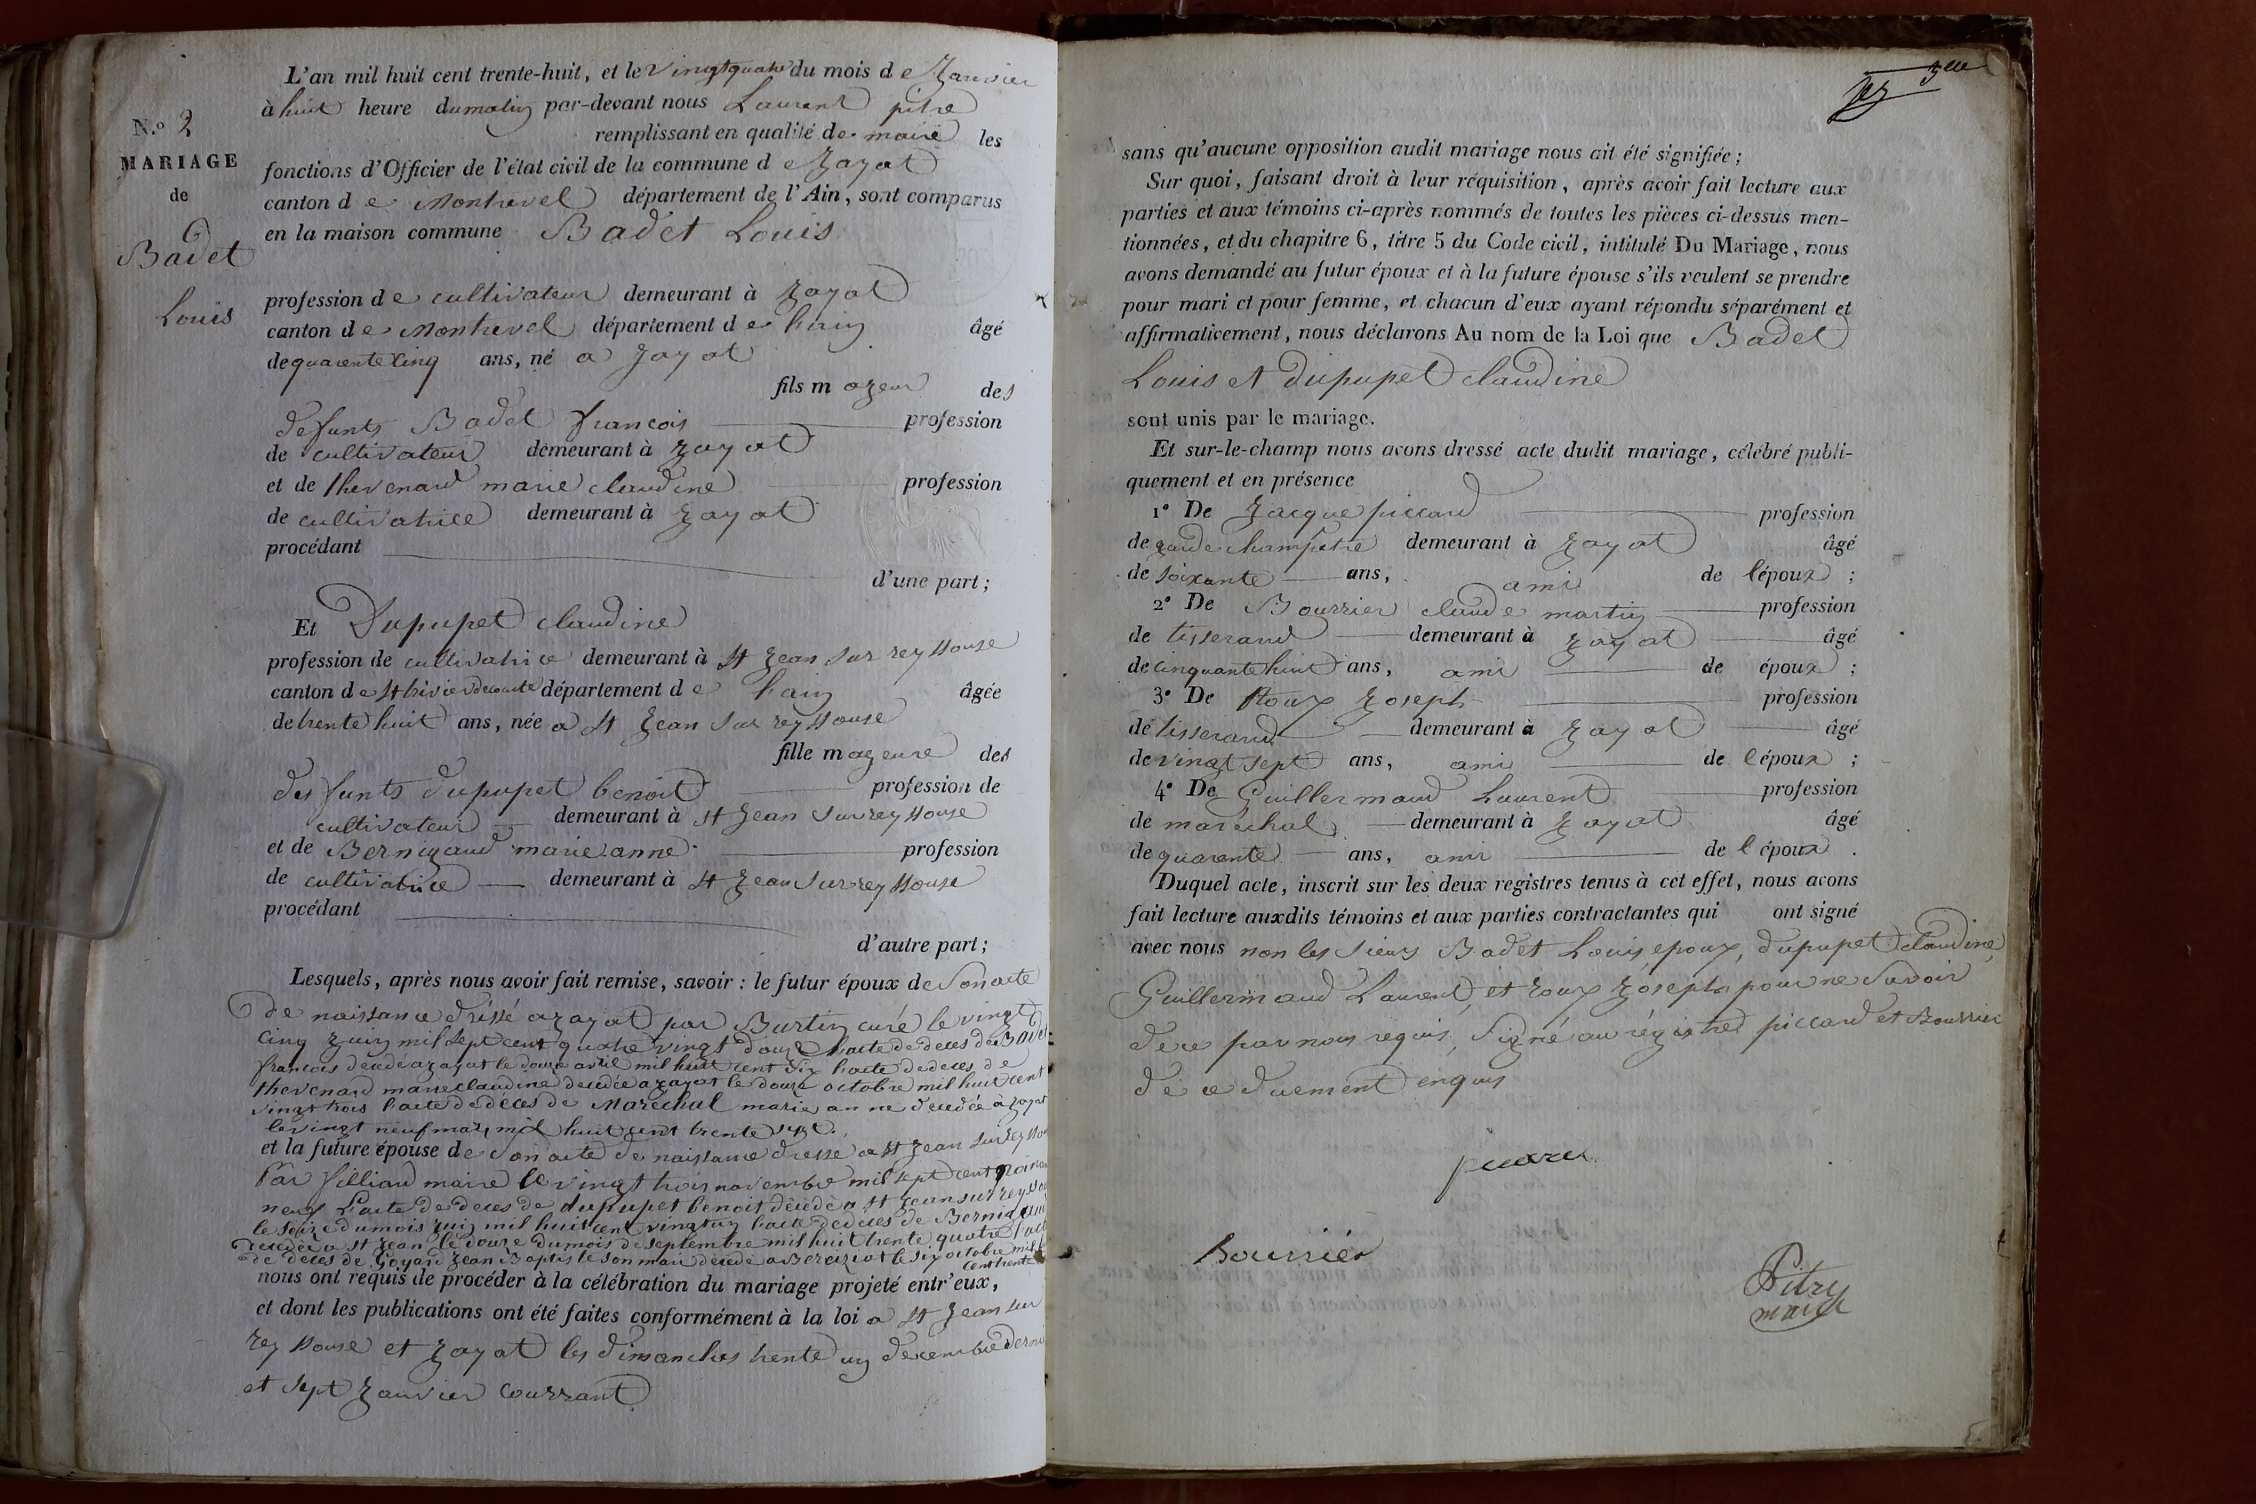 N.o 2
MARIAGE
de
Badet
Louis
L'an mil huit cent trente-huit, et le vingtquatre du mois de Janvier
à huit heure du matin par-devant nous Laurent pitre
remplissant en qualité de maire les
fonctions d'Officier de l'état civil de la commune de Jayat
canton de Montrevel département de l'Ain, sont comparus
en la maison commune Badet Louis
profession de cultivateur demeurant à Jayat
canton de Montrevel département de lain âgé
de quarente cinq ans, né a Jayat
fils majeur des
defunts Badet francois profession
de cultivateur demeurant à Jayat
et de thevenard marie claudine profession
de cultivatrice demeurant à Jayat
procédant
d'une part;
Et Dupupet claudine
profession de cultivatrice demeurant à St Jean sur reyssouse
canton de St trivier de courte département de lain âgée
de trente huit ans, née a St Jean sur reyssouse
fille majeure des
des funts dupupet benoit profession de
cultivateur demeurant à St Jean sur reyssouse
et de Bernigaud marie anne profession
de cultivatrice demeurant à St Jean sur reyssouse
procédant
d'autre part;
Lesquels, après nous avoir fait remise, savoir: le futur époux de son acte
de naissance dréssé a Jayat par Burtin curé le vingt
cinq Juin mil sept cent quatre vingt douze l'acte de deces de Badet
francois décédé a Jayat le douze avril mil huit cent dix l'acte de deces de
thevenard marie claudine decedée a Jayat le douze octobre mil huit cent
vingt trois l'acte de déces de Maréchal marie anne decedée à Jayat
le vingt neuf mars mil huit cent trente sept.
et la future épouse de son acte de naissance dresse a St Jean sur reyssou
Par filliard maire le vingt trois novembre mil sept cent
neuf l'acte de deces de dupupet benoit décédé a St Jean sur reysso
le seize du mois Juin mil huit cent vingt un l'acte de deces de Bernigaud
decedée a St Jean le douze du mois de septembre mil huit trente quatre l'act
de déces de Goyard Jean Baptiste son mari décédé a Bereiziat le six octobre mil
cent trente
nous ont requis de procéder à la célébration du mariage projeté entr'eux,
et dont les publications ont été faites conformément à la loi a St Jean sur
reyssouse et Jayat les dimanches trente un decembre dernie
et sept Janvier courrant
sans qu'aucune opposition audit mariage nous ait été signifiée;
Sur quoi, faisant droit à leur réquisition, après avoir fait lecture aux
parties et aux témoins ci-après nommés de toutes les pièces ci-dessus men-
tionnées, et du chapitre 6, titre 5 du Code civil, intitulé Du Mariage, nous
avons demandé au futur époux et à la future épouse s'ils veulent se prendre
pour mari et pour femme, et chacun d'eux ayant répondu séparément et
affirmativement, nous déclarons Au nom de la Loi que Badet
Louis et dupupet claudine
sont unis par le mariage.
Et sur-le-champ nous avons dressé acte dudit mariage, célébré publi-
quement et en présence
1° De Jacque piccard profession
de garde champetre demeurant à Jayat âgé
de soixante ans, ami de l'époux;
2° De Bourrier claude martin profession
de tisserand demeurant à Jayat âgé
de cinquante huit ans, ami de époux;
3° De Roux Joseph profession
de tisserand demeurant à Jayat âgé
de vingt sept ans, ami de l'époux;
4° De Guillermaud Laurent profession
de maréchal demeurant à Jayat âgé
de quarente ans, ami de l'époux.
Duquel acte, inscrit sur les deux registres tenus à cet effet, nous avons
fait lecture auxdits témoins et aux parties contractantes qui ont signé
avec nous non les sieurs Badet Louis, epoux, dupupet claudine,
Guillermaud Laurent et roux Joseph pour ne savoir
de ce par nous requis, signé au régistre piccard et Bourrier
de ce duement enquis
Bourrier
Pitre
maire